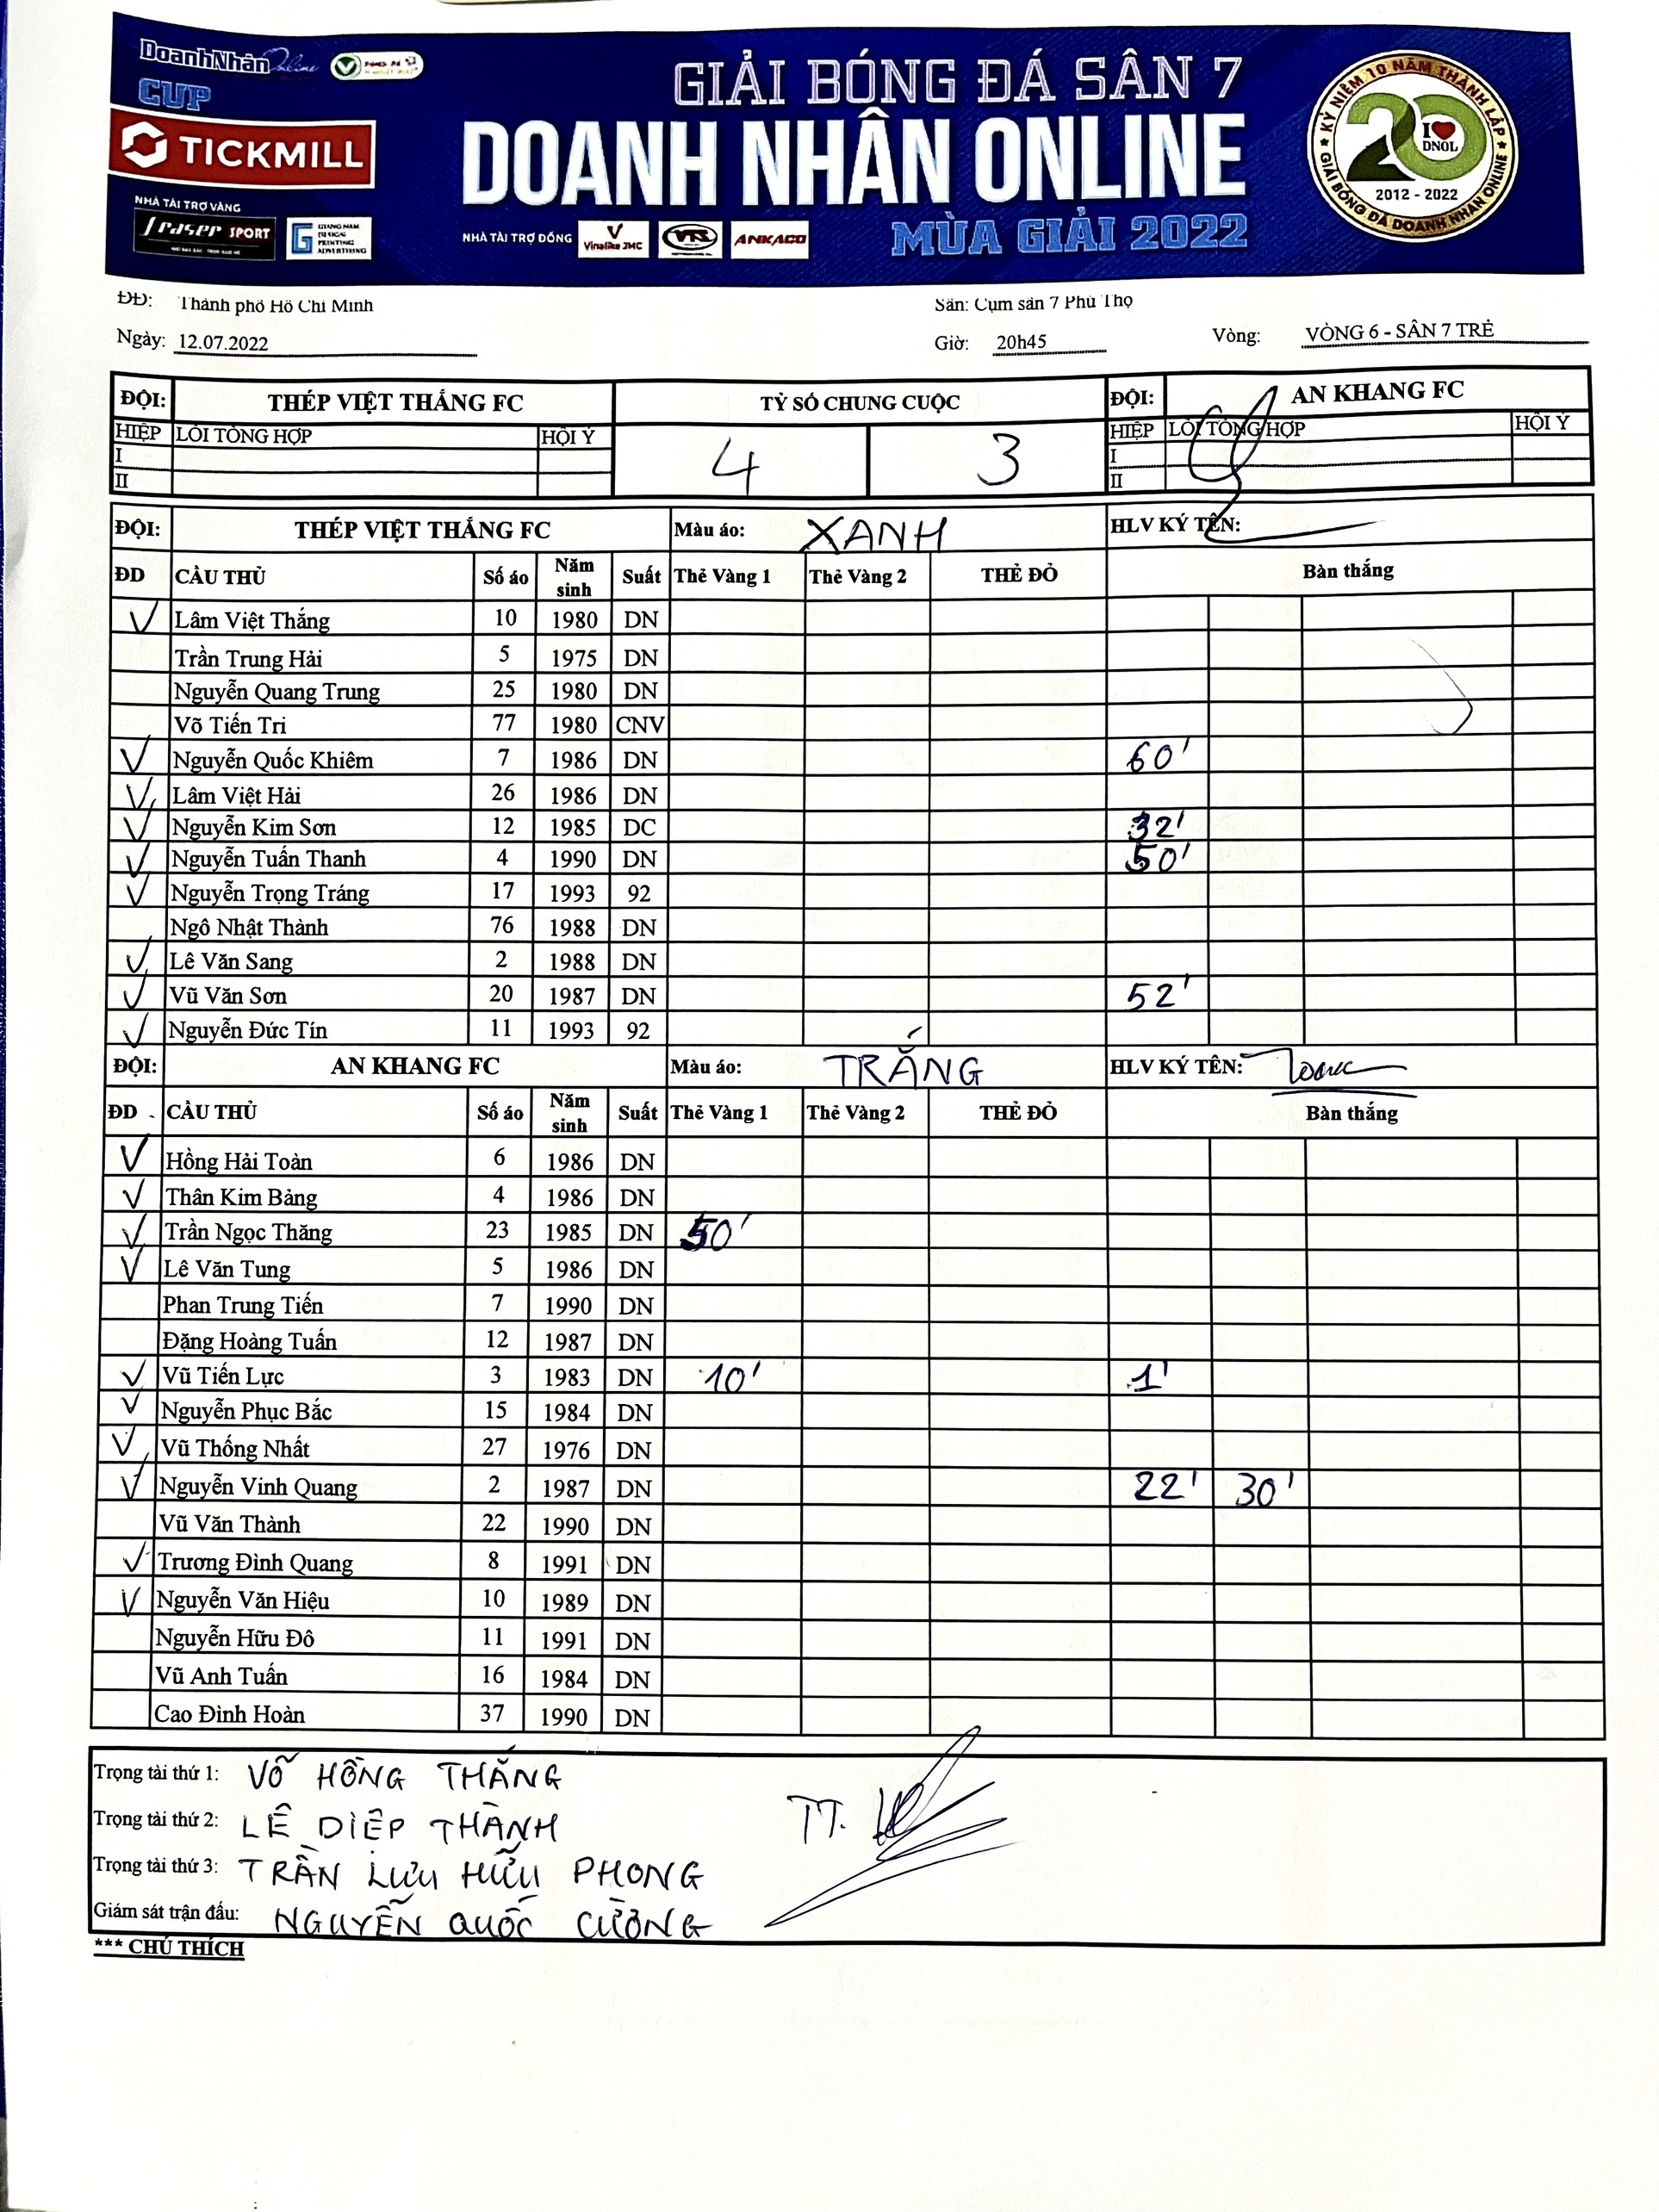 DoanhNhân Online
CUP
TICKMILL
NHÀ TÀI TRỢ VÀNG
fraser SPORT
GIANG NAM
DESIGN
PRINTING
ADVERTISING
GIẢI BÓNG ĐÁ SÂN 7
DOANH NHÂN ONLINE
NHÀ TÀI TRỢ ĐỒNG Vinalike JMC ANKACO MÙA GIẢI 2022
KỶ NIỆM 10 NĂM THÀNH LẬP
20 I ❤ DNOL
2012 - 2022
GIẢI BÓNG ĐÁ DOANH NHÂN ONLINE
ĐĐ: Thành phố Hồ Chí Minh Sân: Cụm sân 7 Phú Thọ
Ngày: 12.07.2022 Giờ: 20h45 Vòng: VÒNG 6 - SÂN 7 TRẺ
ĐỘI: THÉP VIỆT THẮNG FC TỶ SỐ CHUNG CUỘC ĐỘI: AN KHANG FC
HIỆP LỖI TỔNG HỢP HỘI Ý 4 3 HIỆP LỖI TỔNG HỢP HỘI Ý
I I
II II
ĐỘI: THÉP VIỆT THẮNG FC Màu áo: XANH HLV KÝ TÊN:
ĐD CẦU THỦ Số áo Năm sinh Suất Thẻ Vàng 1 Thẻ Vàng 2 THẺ ĐỎ Bàn thắng
V Lâm Việt Thắng 10 1980 DN
Trần Trung Hải 5 1975 DN
Nguyễn Quang Trung 25 1980 DN
Võ Tiến Tri 77 1980 CNV
V Nguyễn Quốc Khiêm 7 1986 DN 60'
V Lâm Việt Hải 26 1986 DN
V Nguyễn Kim Sơn 12 1985 DC 32'
V Nguyễn Tuấn Thanh 4 1990 DN 50'
V Nguyễn Trọng Tráng 17 1993 92
Ngô Nhật Thành 76 1988 DN
V Lê Văn Sang 2 1988 DN
V Vũ Văn Sơn 20 1987 DN 52'
V Nguyễn Đức Tín 11 1993 92
ĐỘI: AN KHANG FC Màu áo: TRẮNG HLV KÝ TÊN:
ĐD CẦU THỦ Số áo Năm sinh Suất Thẻ Vàng 1 Thẻ Vàng 2 THẺ ĐỎ Bàn thắng
V Hồng Hải Toàn 6 1986 DN
V Thân Kim Bảng 4 1986 DN
V Trần Ngọc Thăng 23 1985 DN 50'
V Lê Văn Tung 5 1986 DN
Phan Trung Tiến 7 1990 DN
Đặng Hoàng Tuấn 12 1987 DN
V Vũ Tiến Lực 3 1983 DN 10' 1'
V Nguyễn Phục Bắc 15 1984 DN
V Vũ Thống Nhất 27 1976 DN
V Nguyễn Vinh Quang 2 1987 DN 22' 30'
Vũ Văn Thành 22 1990 DN
V Trương Đình Quang 8 1991 DN
V Nguyễn Văn Hiệu 10 1989 DN
Nguyễn Hữu Đô 11 1991 DN
Vũ Anh Tuấn 16 1984 DN
Cao Đình Hoàn 37 1990 DN
Trọng tài thứ 1: VÕ HỒNG THẮNG
Trọng tài thứ 2: LÊ DIỆP THÀNH TT.
Trọng tài thứ 3: TRẦN LƯU HỮU PHONG
Giám sát trận đấu: NGUYỄN QUỐC CƯỜNG
*** CHÚ THÍCH